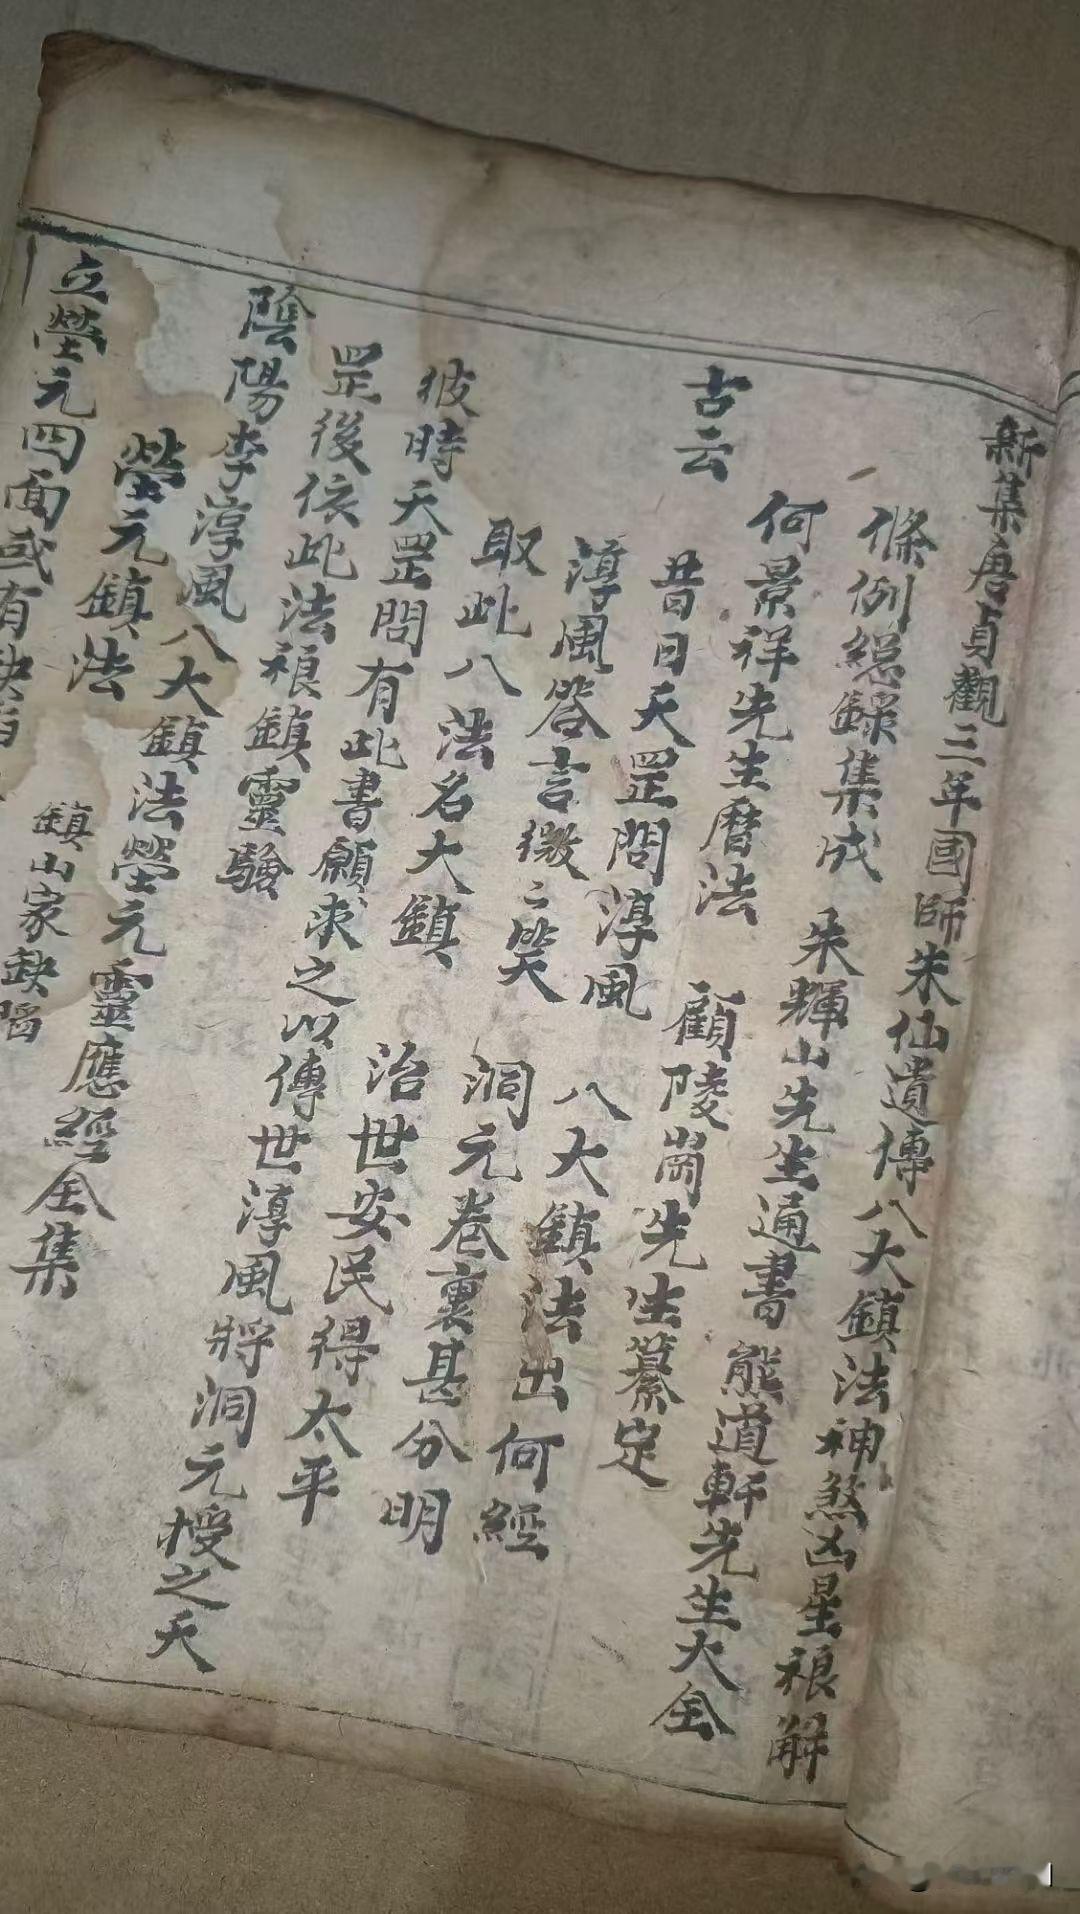 新集唐貞觀三年國師朱仙遺傳八大鎮法神煞凶星䘠解
條例總錄集成 朱輝山先生通書 熊道軒先生大全
何景祥先生曆法 顧陵崗先生纂定
古云
昔日天罡問淳風 八大鎮法出何經
淳風答言微〻笑 洞元卷裏甚分明
取此八法名大鎮 治世安民得太平
彼時天罡問有此書願求之以傳世淳風將洞元授之天
罡後依此法䘠鎮靈驗
陰陽李淳風八大鎮法塋元靈應經全集
塋元鎮法
立塋元四面或有缺陷
鎮山家缺陷